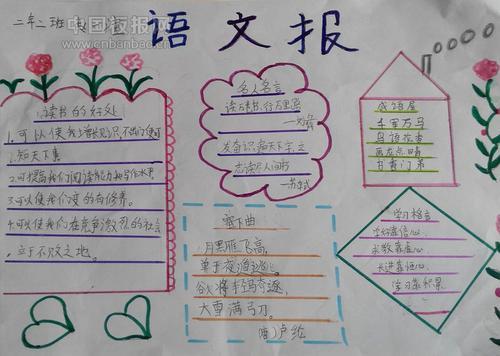 二年二班
中国板报网
www.cnbanbao.cn
语文报
读书的好处
1.可以使我们增长见识
知天下事
2.可以提高我们阅读能力和写作水平
3.可以使我们变的有修养。
4.可以使我们在竞争激烈的社会
立于不败之地。
名人名言
读万卷书,行万里路
发奋识遍天下字,立
志读尽人间书
—苏轼
成语屋
千军万马
鸟语花香
画龙点睛
塞下曲
月黑雁飞高,
单于夜遁逃。
欲将轻骑逐,
大雪满弓刀。
唐)卢纶
学习格言
学好靠信心,
求教靠虚心,
长进靠恒心,
学习靠积累